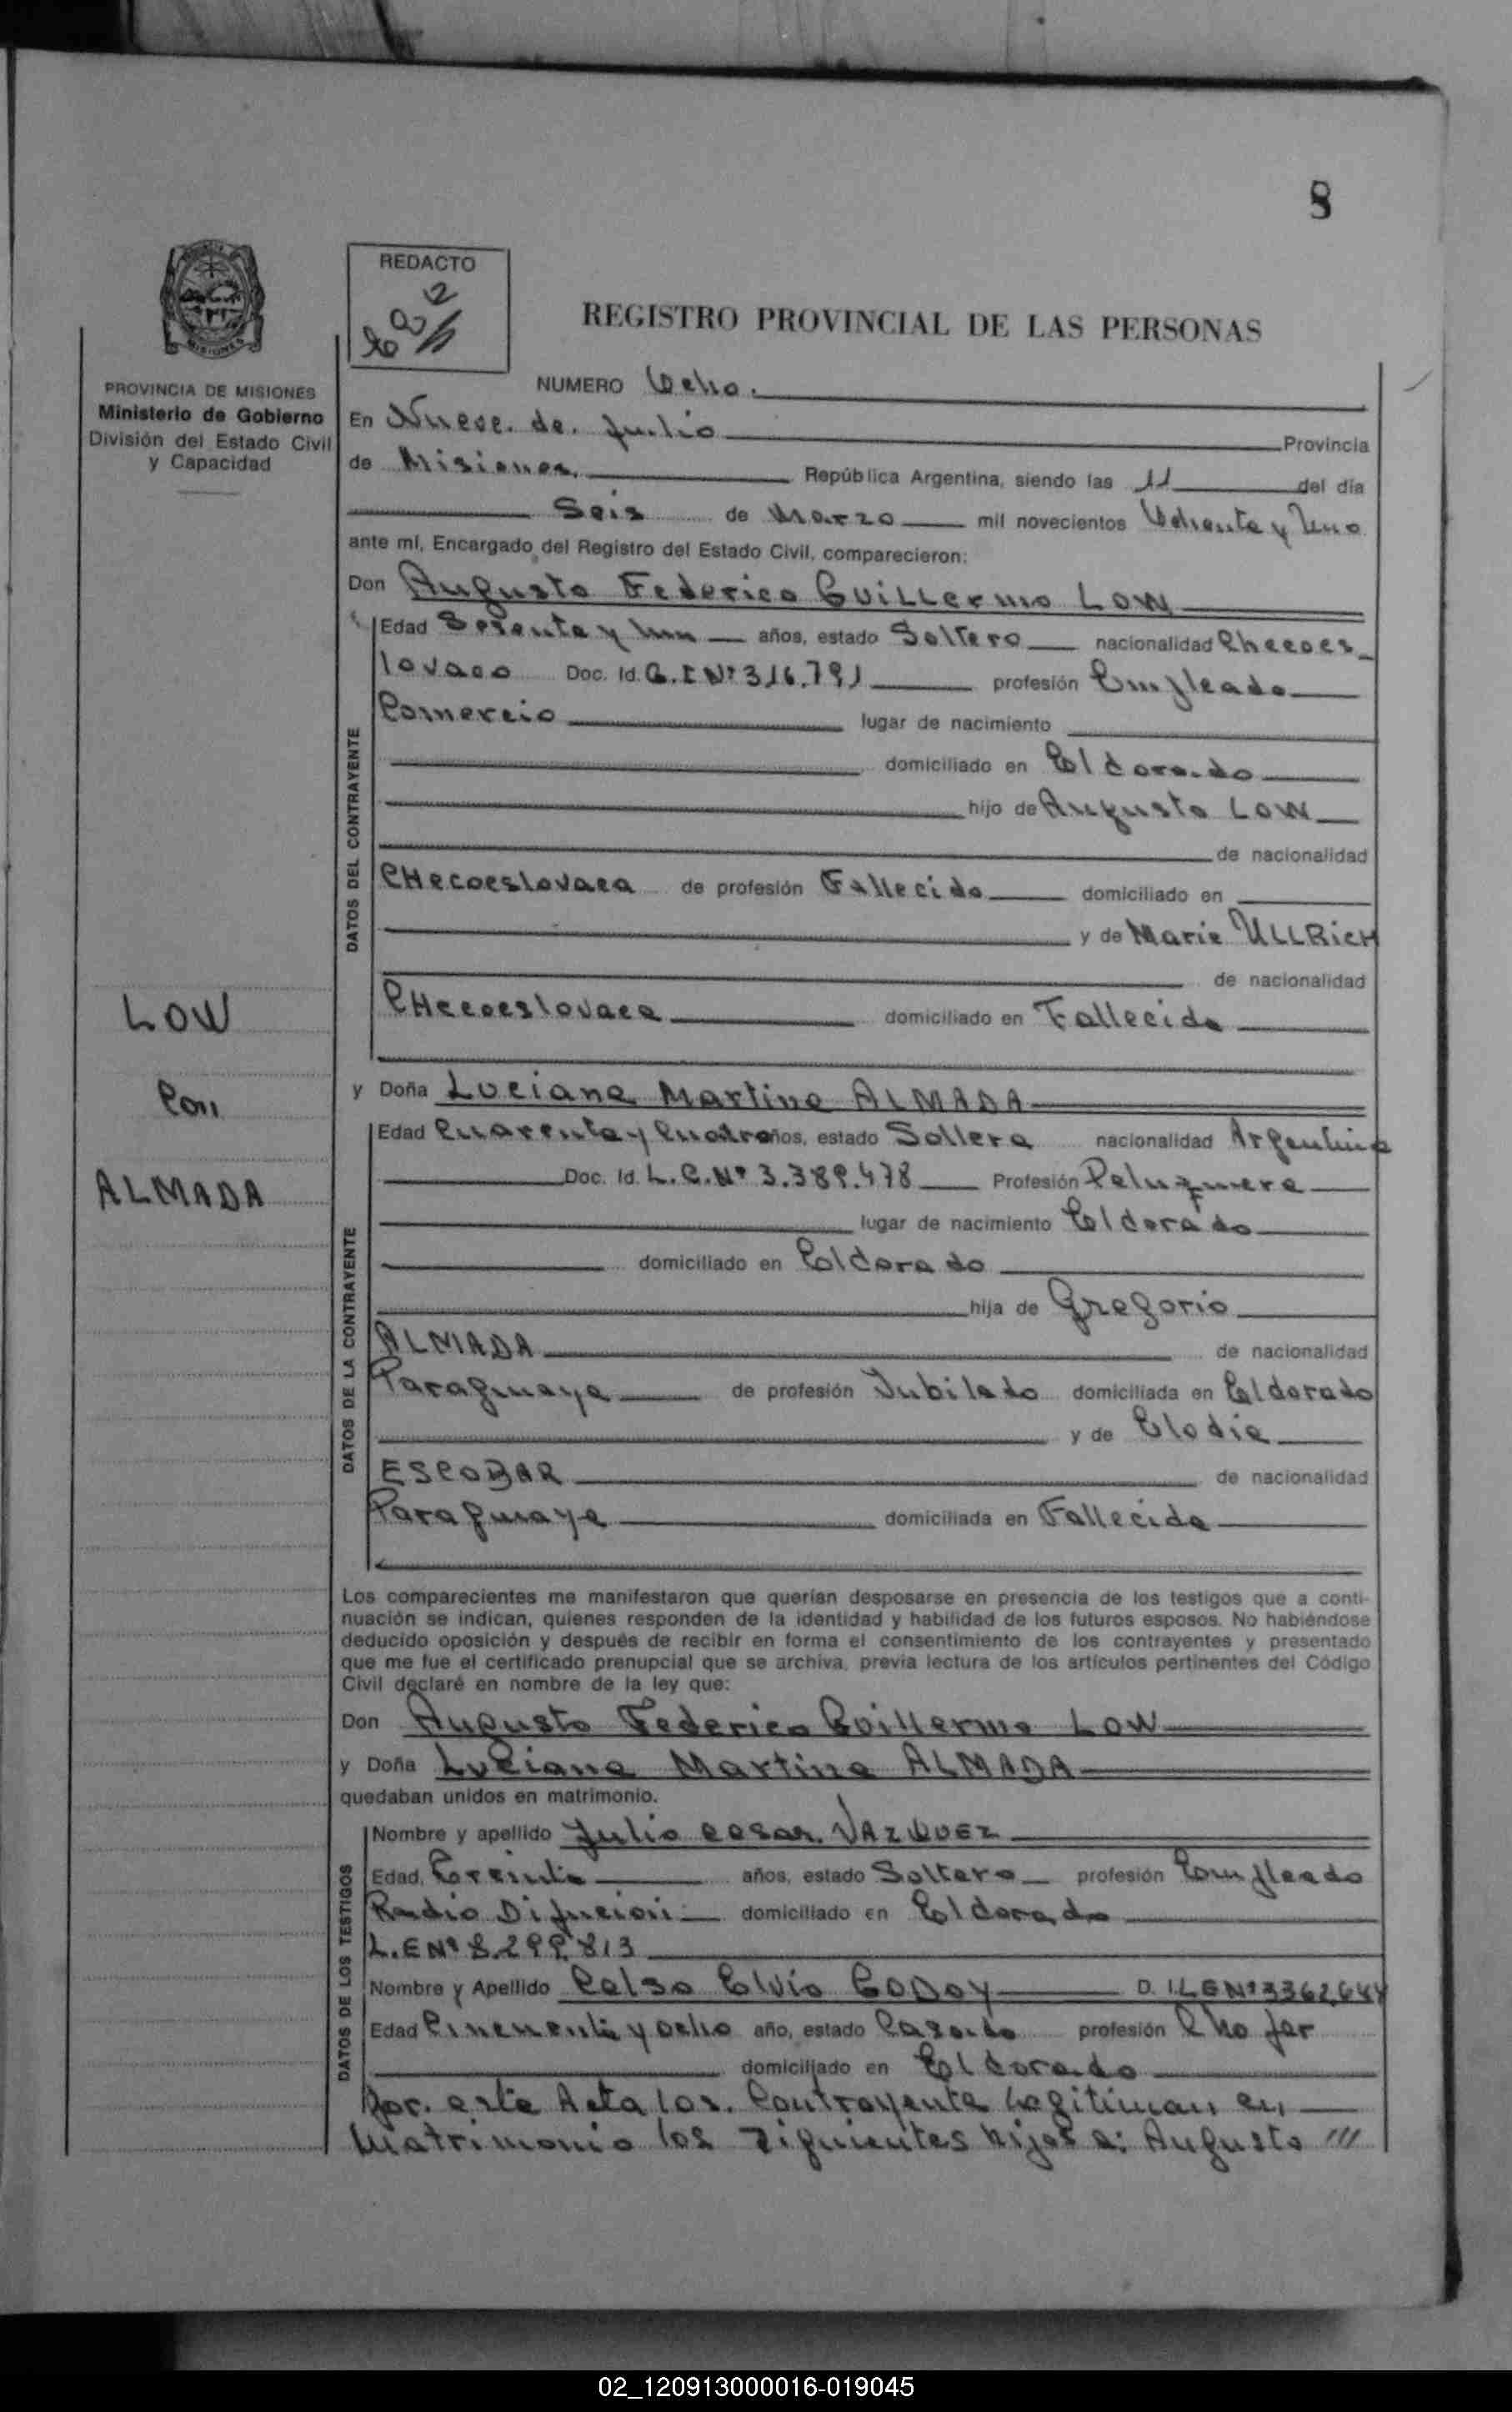 8
REDACTO
REGISTRO PROVINCIAL DE LAS PERSONAS
MISIONES
PROVINCIA DE MISIONES
Ministerio de Gobierno
División del Estado Civil
y Capacidad
NUMERO Ocho.
En Nueve. de. Julio Provincia
de Misiones. República Argentina, siendo las 11 del día
Seis de Marzo mil novecientos Ochenta y Uno
ante mí, Encargado del Registro del Estado Civil, comparecieron:
Don Augusto Federico Guillermo LOW
Edad Sesenta y un años, estado Soltero nacionalidad Checoes_
lovaco Doc. Id. C.I Nº 316.791 profesión Empleado
Comercio lugar de nacimiento
domiciliado en Eldorado
hijo de Augusto LOW
de nacionalidad
CHecoeslovaca de profesión Fallecido domiciliado en
y de Marie ULLRicH
de nacionalidad
CHecoeslovaca domiciliado en Fallecida
y Doña Luciana Martina ALMADA
Edad Cuarenta y Cuatro años, estado Soltera nacionalidad Argentina
Doc. Id. L.C.Nº 3.389.478 Profesión Peluquera
lugar de nacimiento Eldorado
domiciliado en Eldorado
hija de Gregorio
ALMADA de nacionalidad
Paraguaya de profesión Jubilado domiciliada en Eldorado
y de Elodia
ESCOBAR de nacionalidad
Paraguaya domiciliada en Fallecida
DATOS DEL CONTRAYENTE
DATOS DE LA CONTRAYENTE
LOW
Con
ALMADA
Los comparecientes me manifestaron que querían desposarse en presencia de los testigos que a conti-
nuación se indican, quienes responden de la identidad y habilidad de los futuros esposos. No habiéndose
deducido oposición y después de recibir en forma el consentimiento de los contrayentes y presentado
que me fue el certificado prenupcial que se archiva, previa lectura de los artículos pertinentes del Código
Civil declaré en nombre de la ley que:
Don Augusto Federico Guillermo LOW
y Doña Luciana Martina ALMADA
quedaban unidos en matrimonio.
DATOS DE LOS TESTIGOS
Nombre y apellido Julio Cesar. VAZQUEZ
Edad, Treinta años, estado Soltero profesión Empleado
Radio Difucion domiciliado en Eldorado
L.E Nº 8.299.813
Nombre y Apellido Celso Elvio GODOY D. I.L.E Nº 3362644
Edad Cincuenta y ocho año, estado Casado profesión Chofer
domiciliado en Eldorado
Por. este Acta los. Contrayente Legitiman en
Matrimonio los siguientes hijos a: Augusto ///
02_120913000016-019045